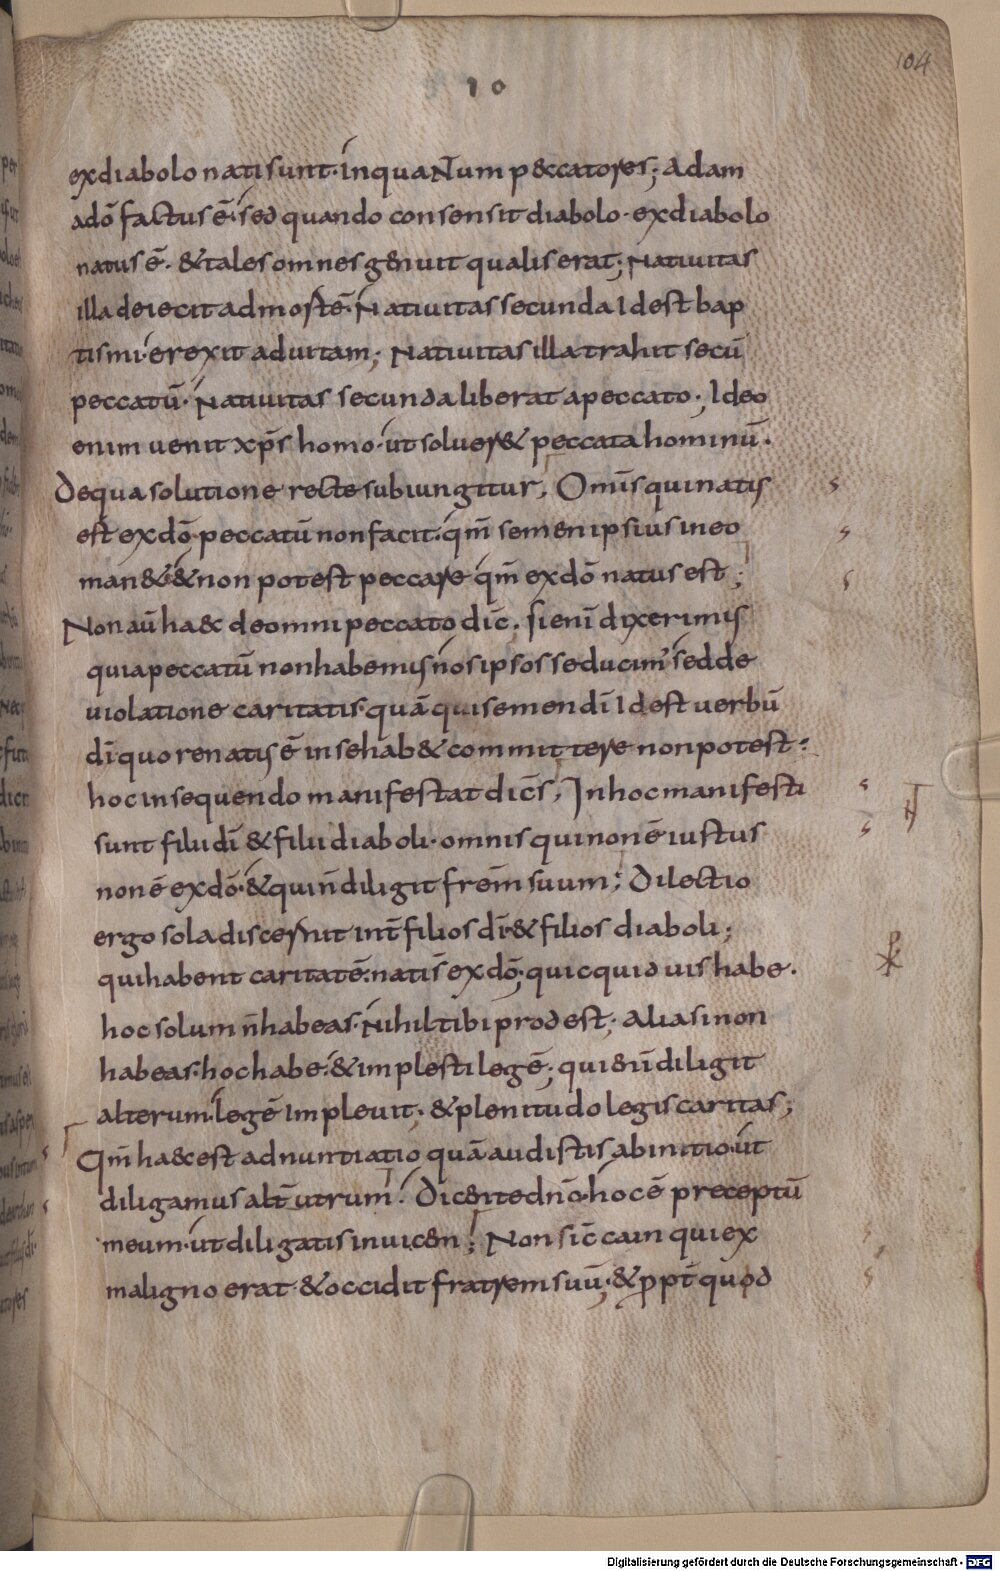 104
10
ex diabolo nati sunt· inquaNtum peccatores; Adam
a dō factus ē· sed quando consensit diabolo· ex diabolo
natus ē· & tales omnes genuit qualis erat; Natiuitas
illa deiecit ad mortē· Natiuitas secunda idest bap
tismi· erexit ad uitam; Natiuitas illa trahit secū
peccatū· Natiuitas secunda liberat a peccato; Ideo
enim uenit xp̄s homo· ut solueret peccata hominū·
De qua solutione recte subiungitur; Omīs qui natus
est ex dō· peccatū non facit· qm̄ semen ipsius in eo
man& & non potest peccare qm̄ ex dō natus est;
Non aū ha&c de omni peccato dic̄· si enī dixerimus
quia peccatū non habemus nos ipsos seducim' sed de
uiolatione caritatis· quā qui semen dī idest uerbū
dī quo renatus ē in se hab& committere non potest·
hoc in sequendo manifestat dicēs; In hoc manifesti
sunt filii dī & filii diaboli· omnis qui non ē iustus
non ē ex dō· & qui n̄ diligit frēm suum; Dilectio
ergo sola discernit int̄ filios dī & filios diaboli;
qui habent caritatē· nati s̄ ex dō; quicquid uis habe·
hoc solum n̄ habeas· Nihil tibi prodest; Alia si non
habeas· hoc habe· & implesti legē; qui enī diligit
alterum· legē impleuit; & plenitudo legis caritas;
Qm̄ ha&c est adnuntiatio quā audistis ab initio· ut
diligamus alt̄utrum· Dicente dn̄o· hoc ē preceptū
meum· ut diligatis inuicem; Non sic̄ cain qui ex
maligno erat· & occidit fratrem suū; & ppt̄ quod
Digitalisierung gefördert durch die Deutsche Forschungsgemeinschaft - DFG